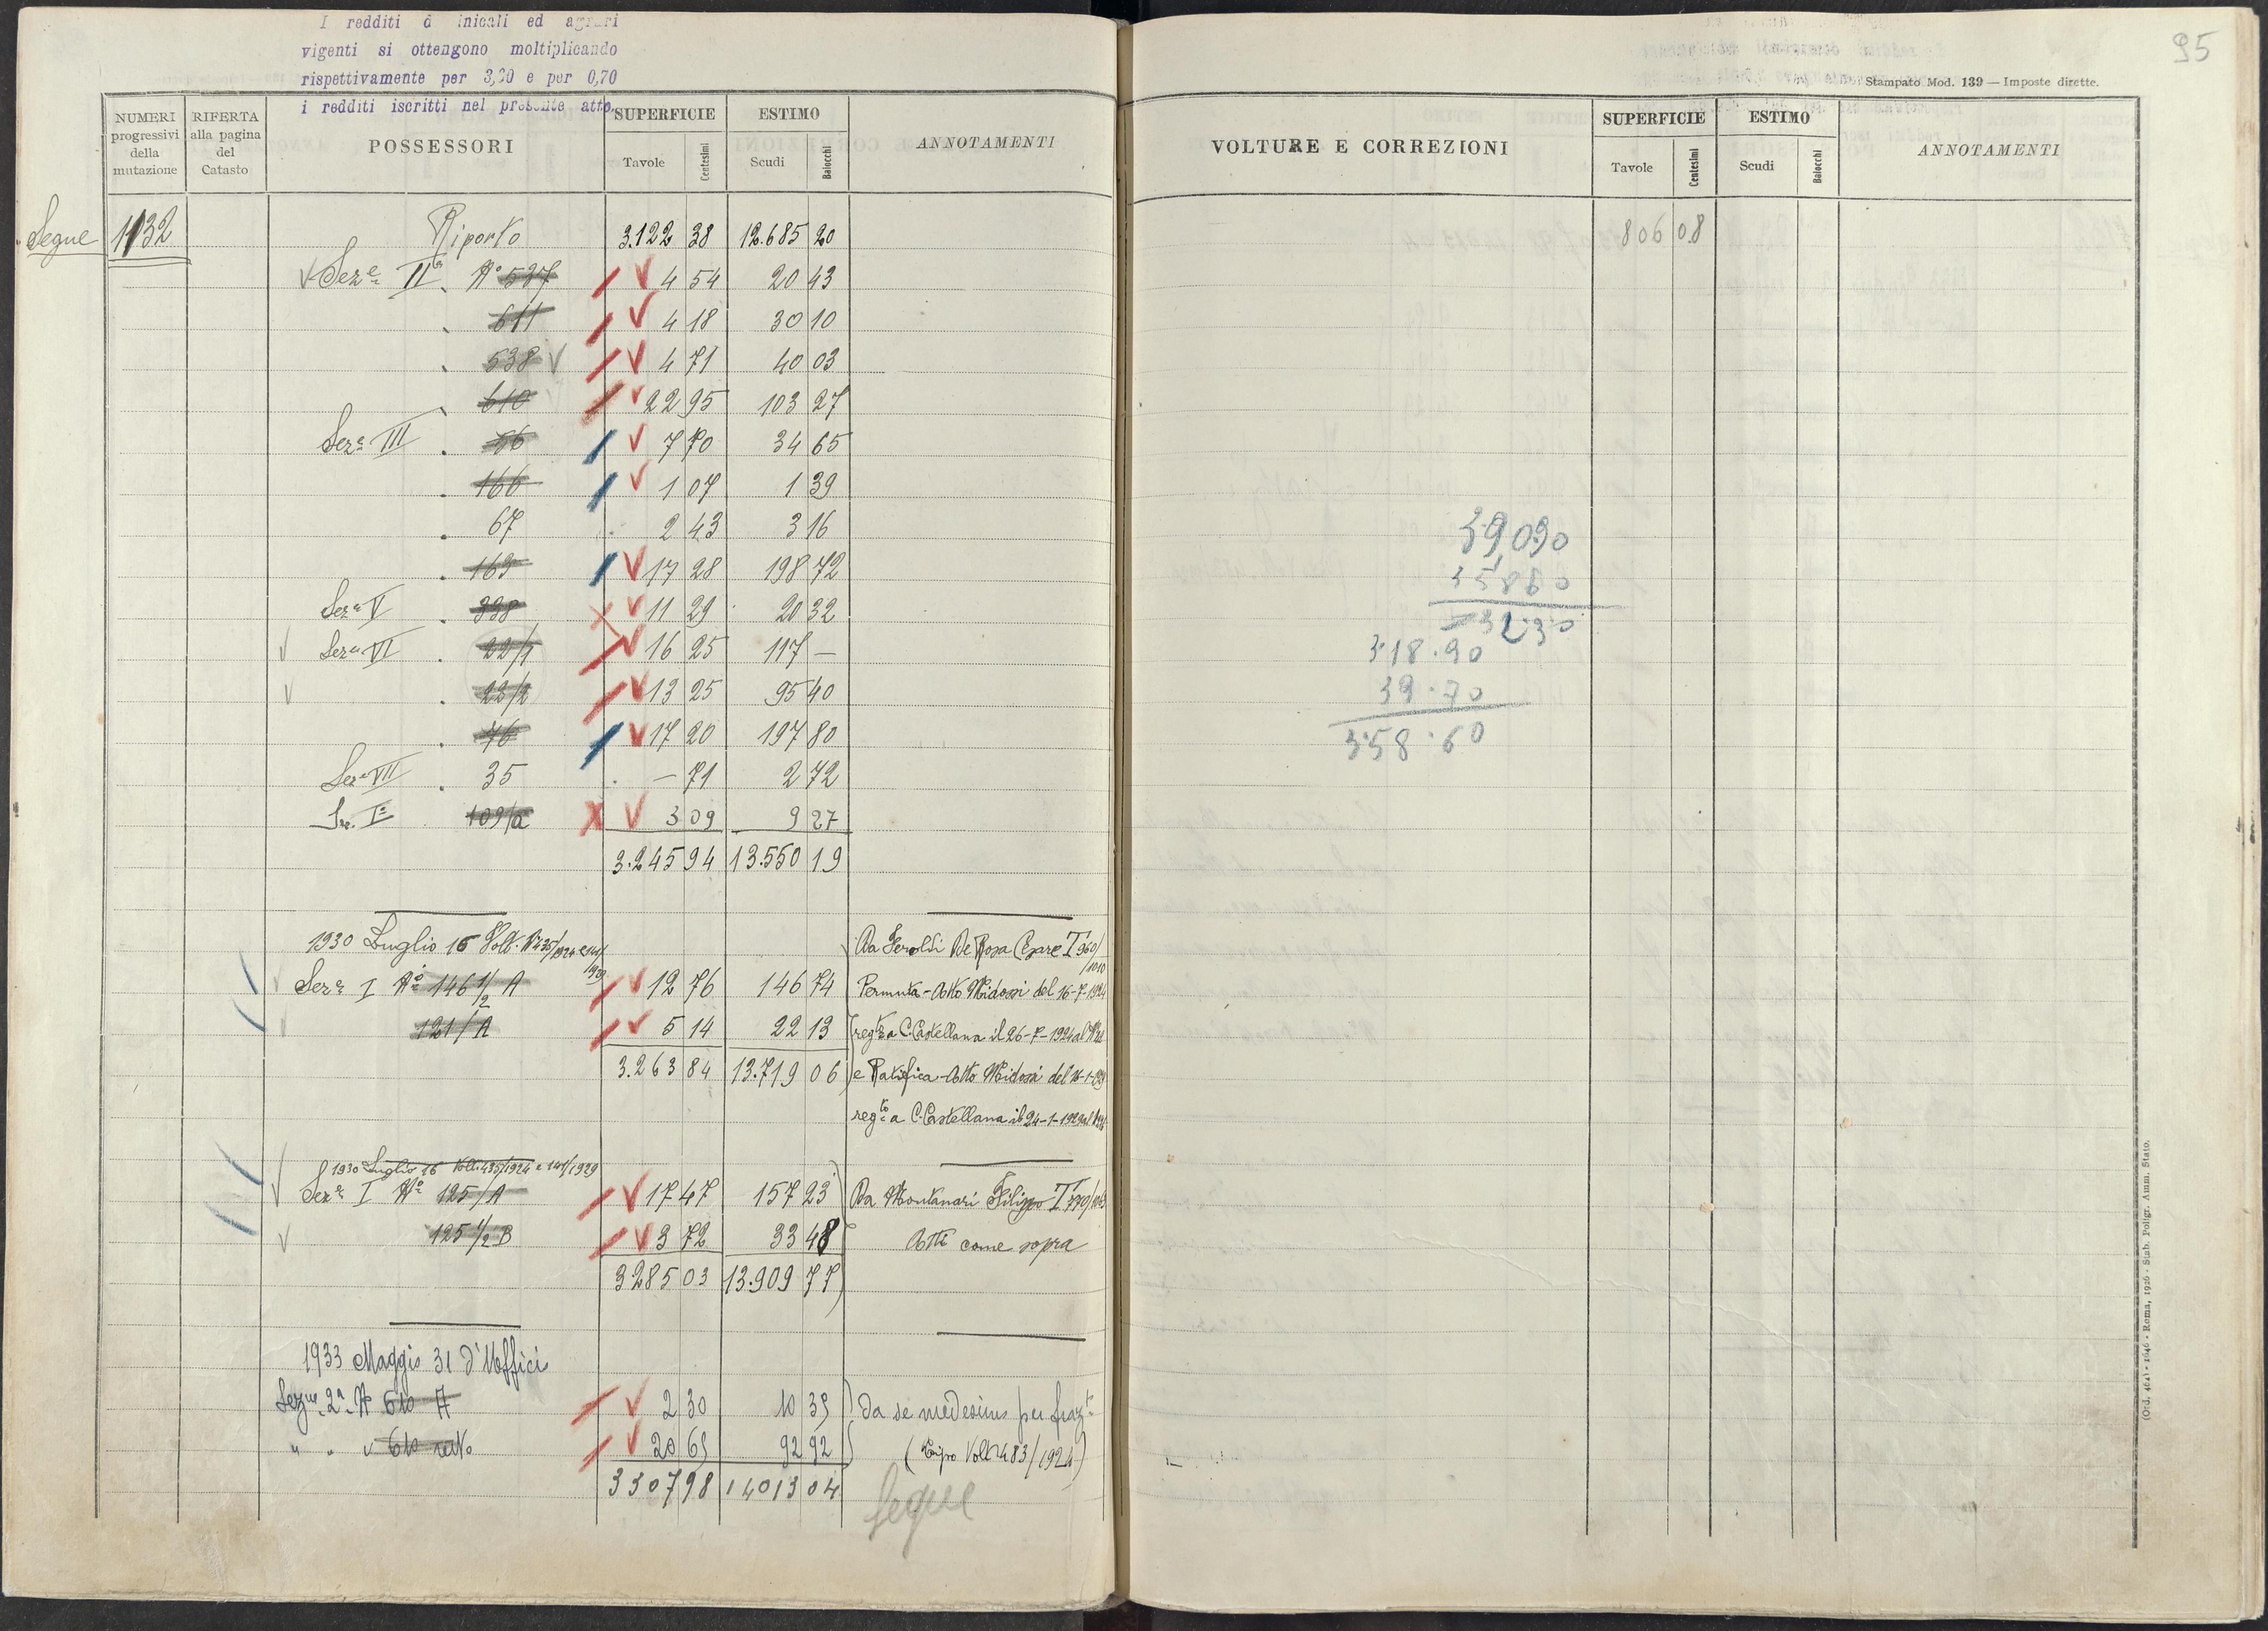 I redditi d inicali ed agrari
vigenti si ottengono moltiplicando
rispettivamente per 3,30 e per 0,70
i redditi iscritti nel presente atto.
95
Stampato Mod. 139 — Imposte dirette.
NUMERI progressivi della mutazione
RIFERTA alla pagina del Catasto
POSSESSORI
SUPERFICIE Tavole Centesimi
ESTIMO Scudi Baiocchi
ANNOTAMENTI
VOLTURE E CORREZIONI
SUPERFICIE Tavole Centesimi
ESTIMO Scudi Baiocchi
ANNOTAMENTI
Segue 1132 Riporto 3.122 38 12.685 20
806 08
Seze II N° 537 4 54 20 43
611 4 18 30 10
538 4 71 40 03
610 22 95 103 27
Seze III 56 7 70 34 65
166 1 07 1 39
67 2 43 3 16
163 17 28 198 72
Seze V 338 11 29 20 32
Seze VI 22/1 16 25 117 —
23/2 13 25 95 40
76 17 20 197 80
Seze VII 35 — 71 2 72
Sez. I 109/a 3 09 9 27
3.245 94 13.550 19
39090
35860
3230
318.90
39.70
358.60
1930 Luglio 16 Volt. N° 435/1924 e 141/1929
Da Feroldi De Rosa Cesare T 960/1010
Seze I N° 146 1/2 A 12 76 146 74 Permuta - Atto Midossi del 16-7-1924
121/A 5 14 22 13 regto a C. Castellana il 26-7-1924 al N°
3.263 84 13.719 06 e Ratifica - Atto Midossi del
regto a C. Castellana il 24-1-1929 al N°
1930 Luglio 16 Volt. 435/1924 e 141/1929
Seze I N° 125/A 17 47 157 23 Da Montanari Filippo T
125 1/2 B 3 72 33 48 Atti come sopra
3285 03 13.909 77
1933 Maggio 31 d'Ufficio
Sezne 2a N° 610 A 2 30 10 35 Da se medesimo per frazto
" " " 610 resto 20 65 92 92 (Tipo Volt. 483/1924)
3307 98 14013 04
Segue
(Ord. 464) - 1646 - Roma, 1926 - Stab. Poligr. Amm. Stato.